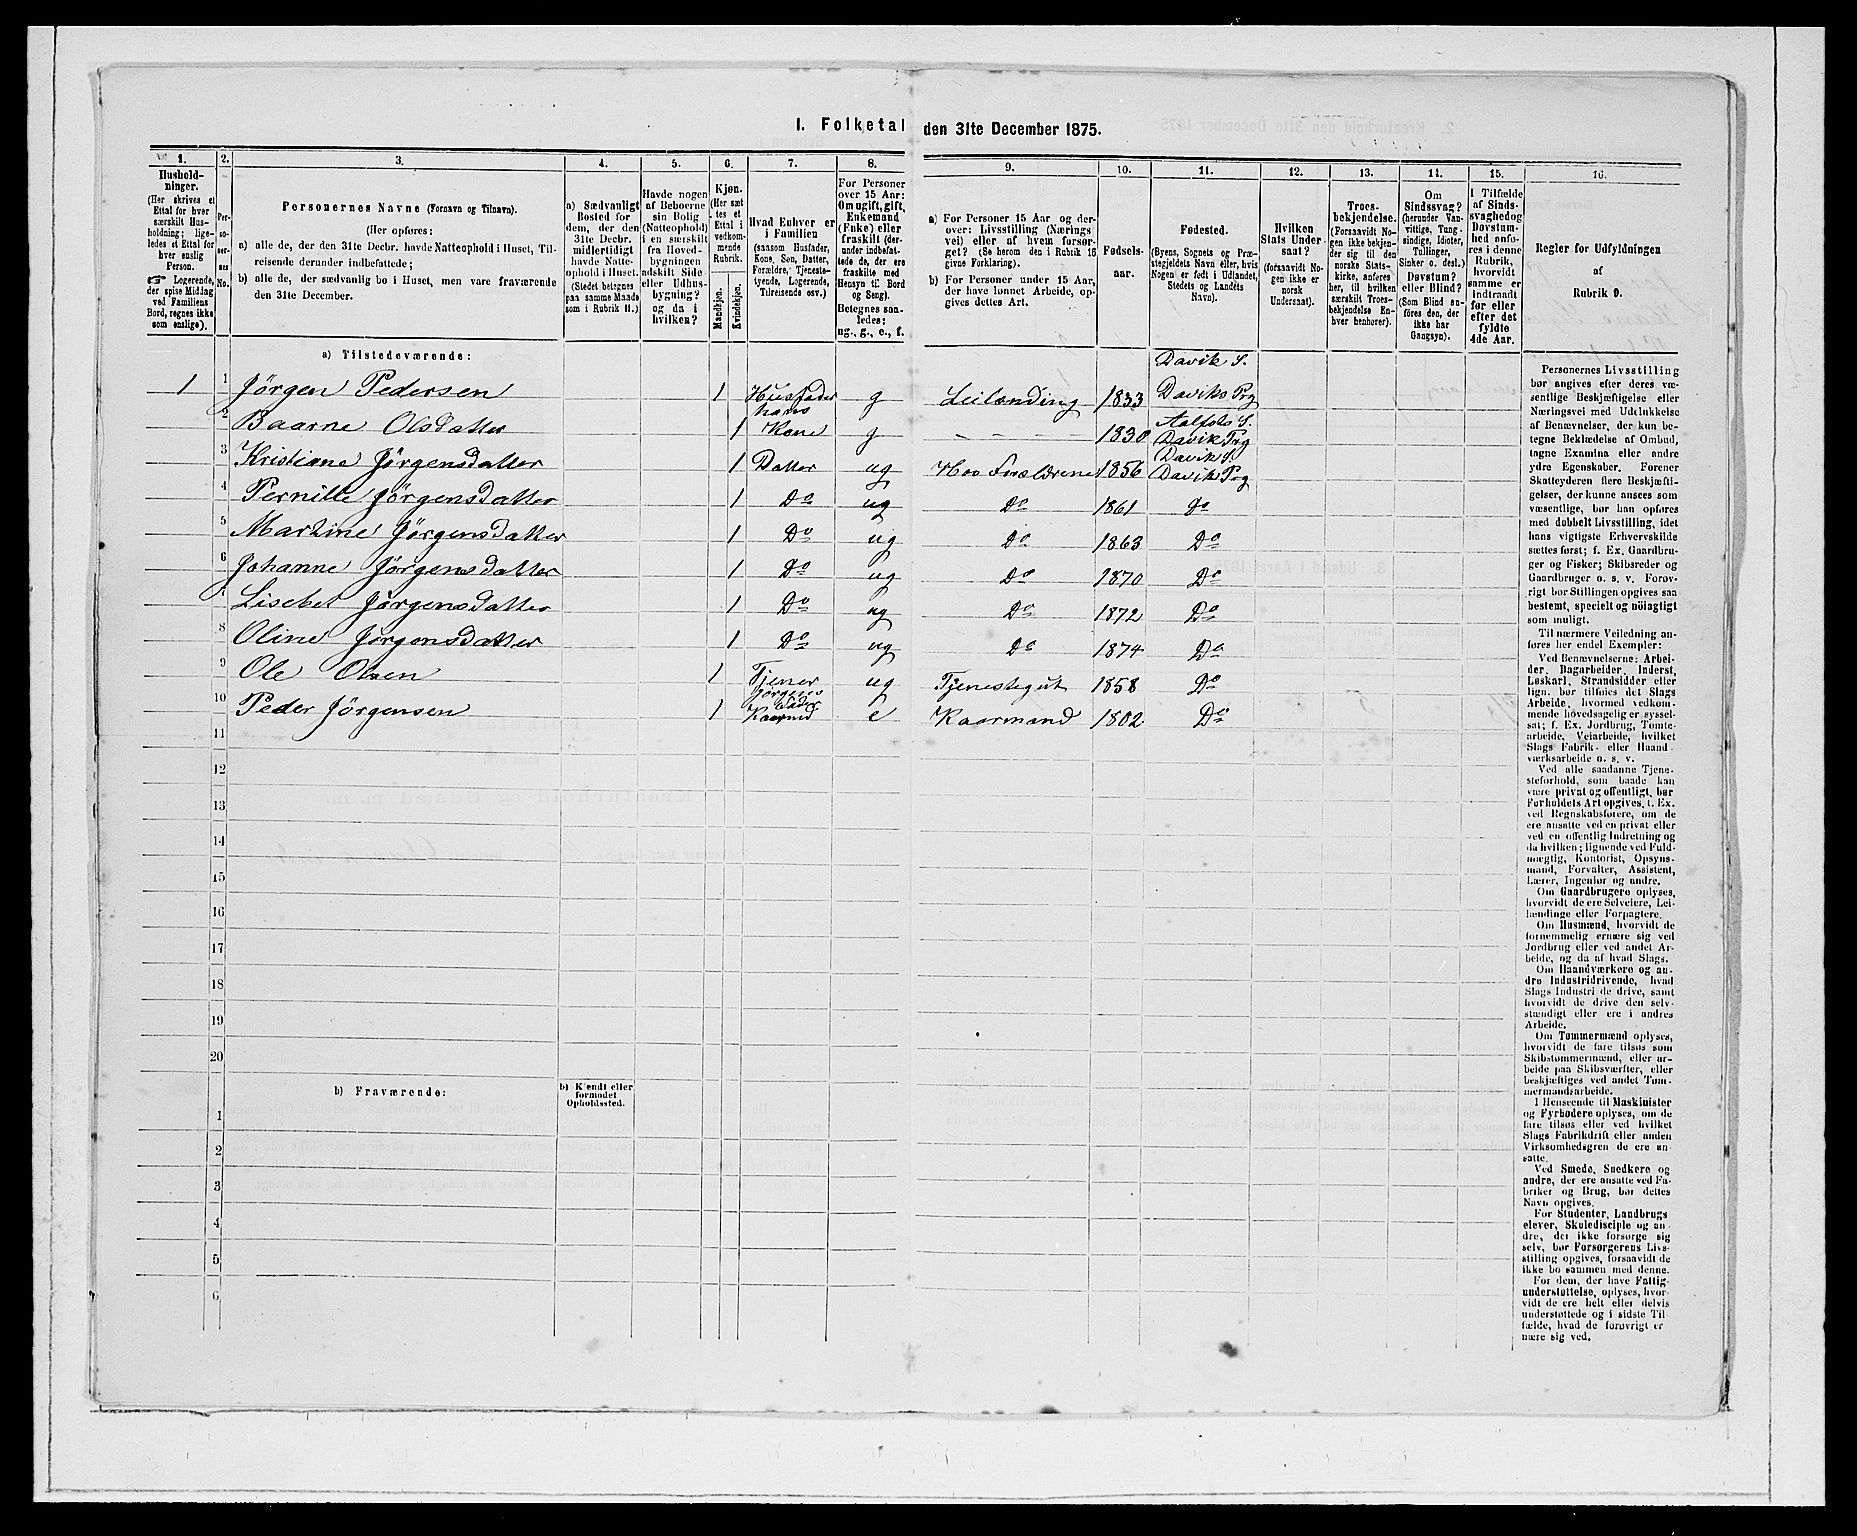 I. Folketal den 31te December 1875.
1.
2.
3.
4.
5.
6.
7.
8.
9.
10.
11.
12.
13.
14.
15.
16.
Hushold-
ninger.
(Her skrives et
Ettal for hver
særskilt Hus-
holdning; lige-
ledes et Ettal for
hver enslig
Person.
☞ Logerende,
der spise Middag
ved Familiens
Bord, regnes ikke
som enslige).
Per-
soner-
nes
No.
Personernes Navne (Fornavn og Tilnavn).
(Her opføres:
a) alle de, der den 31te Decbr. havde Natteophold i Huset, Til-
reisende derunder indbefattede;
b) alle de, der sædvanlig bo i Huset, men vare fraværende
den 31te December.
a) Sædvanligt
Bosted for
dem, der den
31te Decbr.
midlertidigt
havde Natte-
ophold i Huset.
(Stedet betegnes
paa samme Maade
som i Rubrik 11.)
Havde nogen
af Beboerne
sin Bolig
(Natteophold)
i en særskilt
fra Hoved-
bygningen
adskilt Side-
eller Udhus-
bygning?
og da i
hvilken?
Kjøn.
(Her sæt
tes et
Ettal i
vedkom-
mende
Rubrik.
Mandkjøn.
Kvindekjøn.
Hvad Enhver er
i Familien
(saasom Husfader,
Kone, Søn, Datter,
Forældre, Tjeneste-
tyende, Logerende,
Tilreisende osv.)
For Personer
over 15 Aar:
Om ugift, gift,
Enkemand
(Enke) eller
fraskilt (der-
under indbefat-
tede de, der ere
fraskilte med
Hensyn til Bord
og Seng).
Betegnes saa-
ledes:
ug., g., e., f.
a) For Personer 15 Aar og der-
over: Livsstilling (Nærings
vei) eller af hvem forsør-
get? (Se herom den i Rubrik 16
givne Forklaring).
b) For Personer under 15 Aar,
der have lønnet Arbeide, op-
gives dettes Art.
Fødsels-
aar.
Fødested.
(Byens, Sognets og Præ-
stegjeldets Navn eller, hvis
Nogen er født i Udlandet,
Stedets og Landets
Navn).
Hvilken
Stats Under-
saat?
(forsaavidt No-
gen ikke er
norsk
Undersaat).
Troes-
bekjendelse.
(Forsaavidt No-
gen ikke bekjen-
der sig til den
norske Stats-
kirke, anføres
her, til hvilken
særskilt Troes-
bekjendelse En-
hver henhører).
Om
Sindssvag?
(herunder Van-
vittige, Tung-
sindige, Idioter,
Tullinger,
Sinker o. desl.)
Døvstum?
eller Blind?
(Som Blind an-
føres den, der
ikke har
Gangsyn).
I Tilfælde
af Sinds-
svaghed og
Døvstum-
hed anfø-
res i denne
Rubrik,
hvorvidt
samme er
indtraadt
før eller
efter det
fyldte
4de Aar.
Regler for Udfyldningen
af
Rubrik 9.
a) Tilstedeværende:
Davik S.
1 1 Jörgen Pedersen 1 Husfader g Leilænding 1833 Daviks Prg
hans Aalfots S.
2 Baarne Olsdatter 1 Kone g - - - - 1830 Davik Prg
Davik S.
3 Kristiane Jörgensdatter 1 Datter ug Hos Forældrene 1856 Davik Prg
4 Pernille Jörgensdatter 1 Do ug Do 1861 do
5 Martine Jörgensdatter 1 Do ug Do 1863 Do
6 Johanne Jörgensdatter 1 Do ug Do 1870 Do
Lisebet Jörgensdatter 1 Do ug Do 1872 Do
8 Oline Jørgensdatter 1 Do ug Do 1874 Do
9 Ole Olsen 1 Tjener ug Tjenestegut 1858 Do
Jørgens
Fader
10 Peder Jörgensen 1 Kaarmd e Kaarmand 1802 Do
11
12
13
14
15
16
17
18
19
20
b) Fraværende:
b) Kjendt eller
formodet
Opholdssted.
1
2
3
4
5
6
Personernes Livsstilling
bør angives efter deres væ-
sentlige Beskjæftigelse eller
Næringsvei med Udelukkelse
af Benævnelser, der kun be-
tegne Beklædelse af Ombud,
tagne Examina eller andre
ydre Egenskaber. Forener
Skatteyderen flere Beskjæfti-
gelser, der kunne ansees som
væsentlige, bør han opføres
med dobbelt Livsstilling, idet
hans vigtigste Erhvervskilde
sættes først; f. Ex. Gaardbru-
ger og Fisker; Skibsreder og
Gaardbruger o. s. v. Forøv-
rigt bør Stillingen opgives saa
bestemt, specielt og nøiagtigt
som muligt.
Til nærmere Veiledning an-
føres her endel Exempler:
Ved Benævnelserne: Arbei-
der, Dagarbeider, Inderst,
Løskarl, Strandsidder eller
lign. bør tilføies det Slags
Arbeide, hvormed vedkom-
mende hovedsagelig er syssel-
sat; f. Ex. Jordbrug, Tomte-
arbeide, Veiarbeide, hvilket
Slags Fabrik- eller Haand-
værksarbeide o. s. v.
Ved alle saadanne Tjene-
steforhold, som baade kan
være privat og offentligt, bør
Forholdets Art opgives, t. Ex.
ved Regnskabsførere, om de
ere ansatte ved en privat eller
ved en offentlig Indretning og
da hvilken; lignende ved Fuld-
mægtig, Kontorist, Opsyns-
mand, Forvalter, Assistent,
Lærer, Ingeniør og andre.
Om Gaardbrugere oplyses,
hvorvidt de ere Selveiere, Lei-
lændinge eller Forpagtere.
Om Husmænd, hvorvidt de
fornemmelig ernære sig ved
Jordbrug eller ved andet Ar-
beide, og da af hvad Slags.
Om Haandværkere og an-
dre Industridrivende, hvad
Slags Industri de drive, samt
hvorvidt de drive den selv-
stændigt eller ere i andres
Arbeide.
Om Tømmermænd oplyses,
hvorvidt de fare tilsøs som
Skibstømmermænd, eller ar-
beide paa Skibsværfter, eller
beskjæftiges ved andet Tøm-
mermandsarbeide.
I Henseende til Maskinister
og Fyrbødere oplyses, om de
fare tilsøs eller ved hvilket
Slags Fabrikdrift eller anden
Virksomhedsgren de ere an-
satte.
Ved Smede, Snedkere og
andre, der ere ansatte ved Fa-
briker og Brug, bør dettes
Navn opgives.
For Studenter, Landbrugs
elever, Skoledisciple og an-
dre, der ikke forsørge sig
selv, bør Forsørgerens Livs-
stilling opgives, forsaavidt de
ikke bo sammen med denne.
For dem, der have Fattig-
understøttelse, oplyses, hvor-
vidt de ere helt eller delvis
understøttede og i sidste Til-
fælde, hvad de forøvrigt er
nære sig ved.